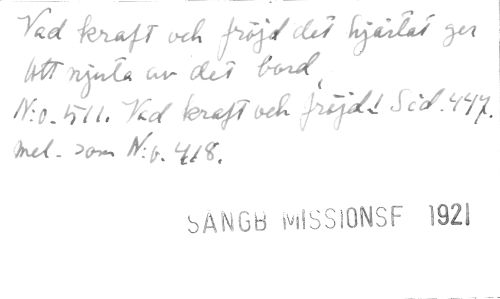 Vad kraft och fröjd det hjärtat ger
Att njuta av det bord,
N:o. 511. Vad kraft och fröjd! Sid. 447.
mel. som N:o. 418.
SANGB MISSIONSF 1921